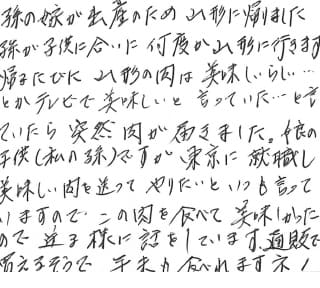 孫の嫁が出産のため山形に帰りました
孫が子供に会いに何度か山形に行きます
帰るたびに山形の肉は美味しいらしい…
とかテレビで美味しいと言っていた…と言
ていたら突然肉が届きました。娘の
子供(私の孫)ですが東京に就職し
美味しい肉を送ってやりたいといつも言って
いますので、この肉を食べて美味しかった
ので送る様に話をしています。通販で
買えるそうで年末か食べれますネ!